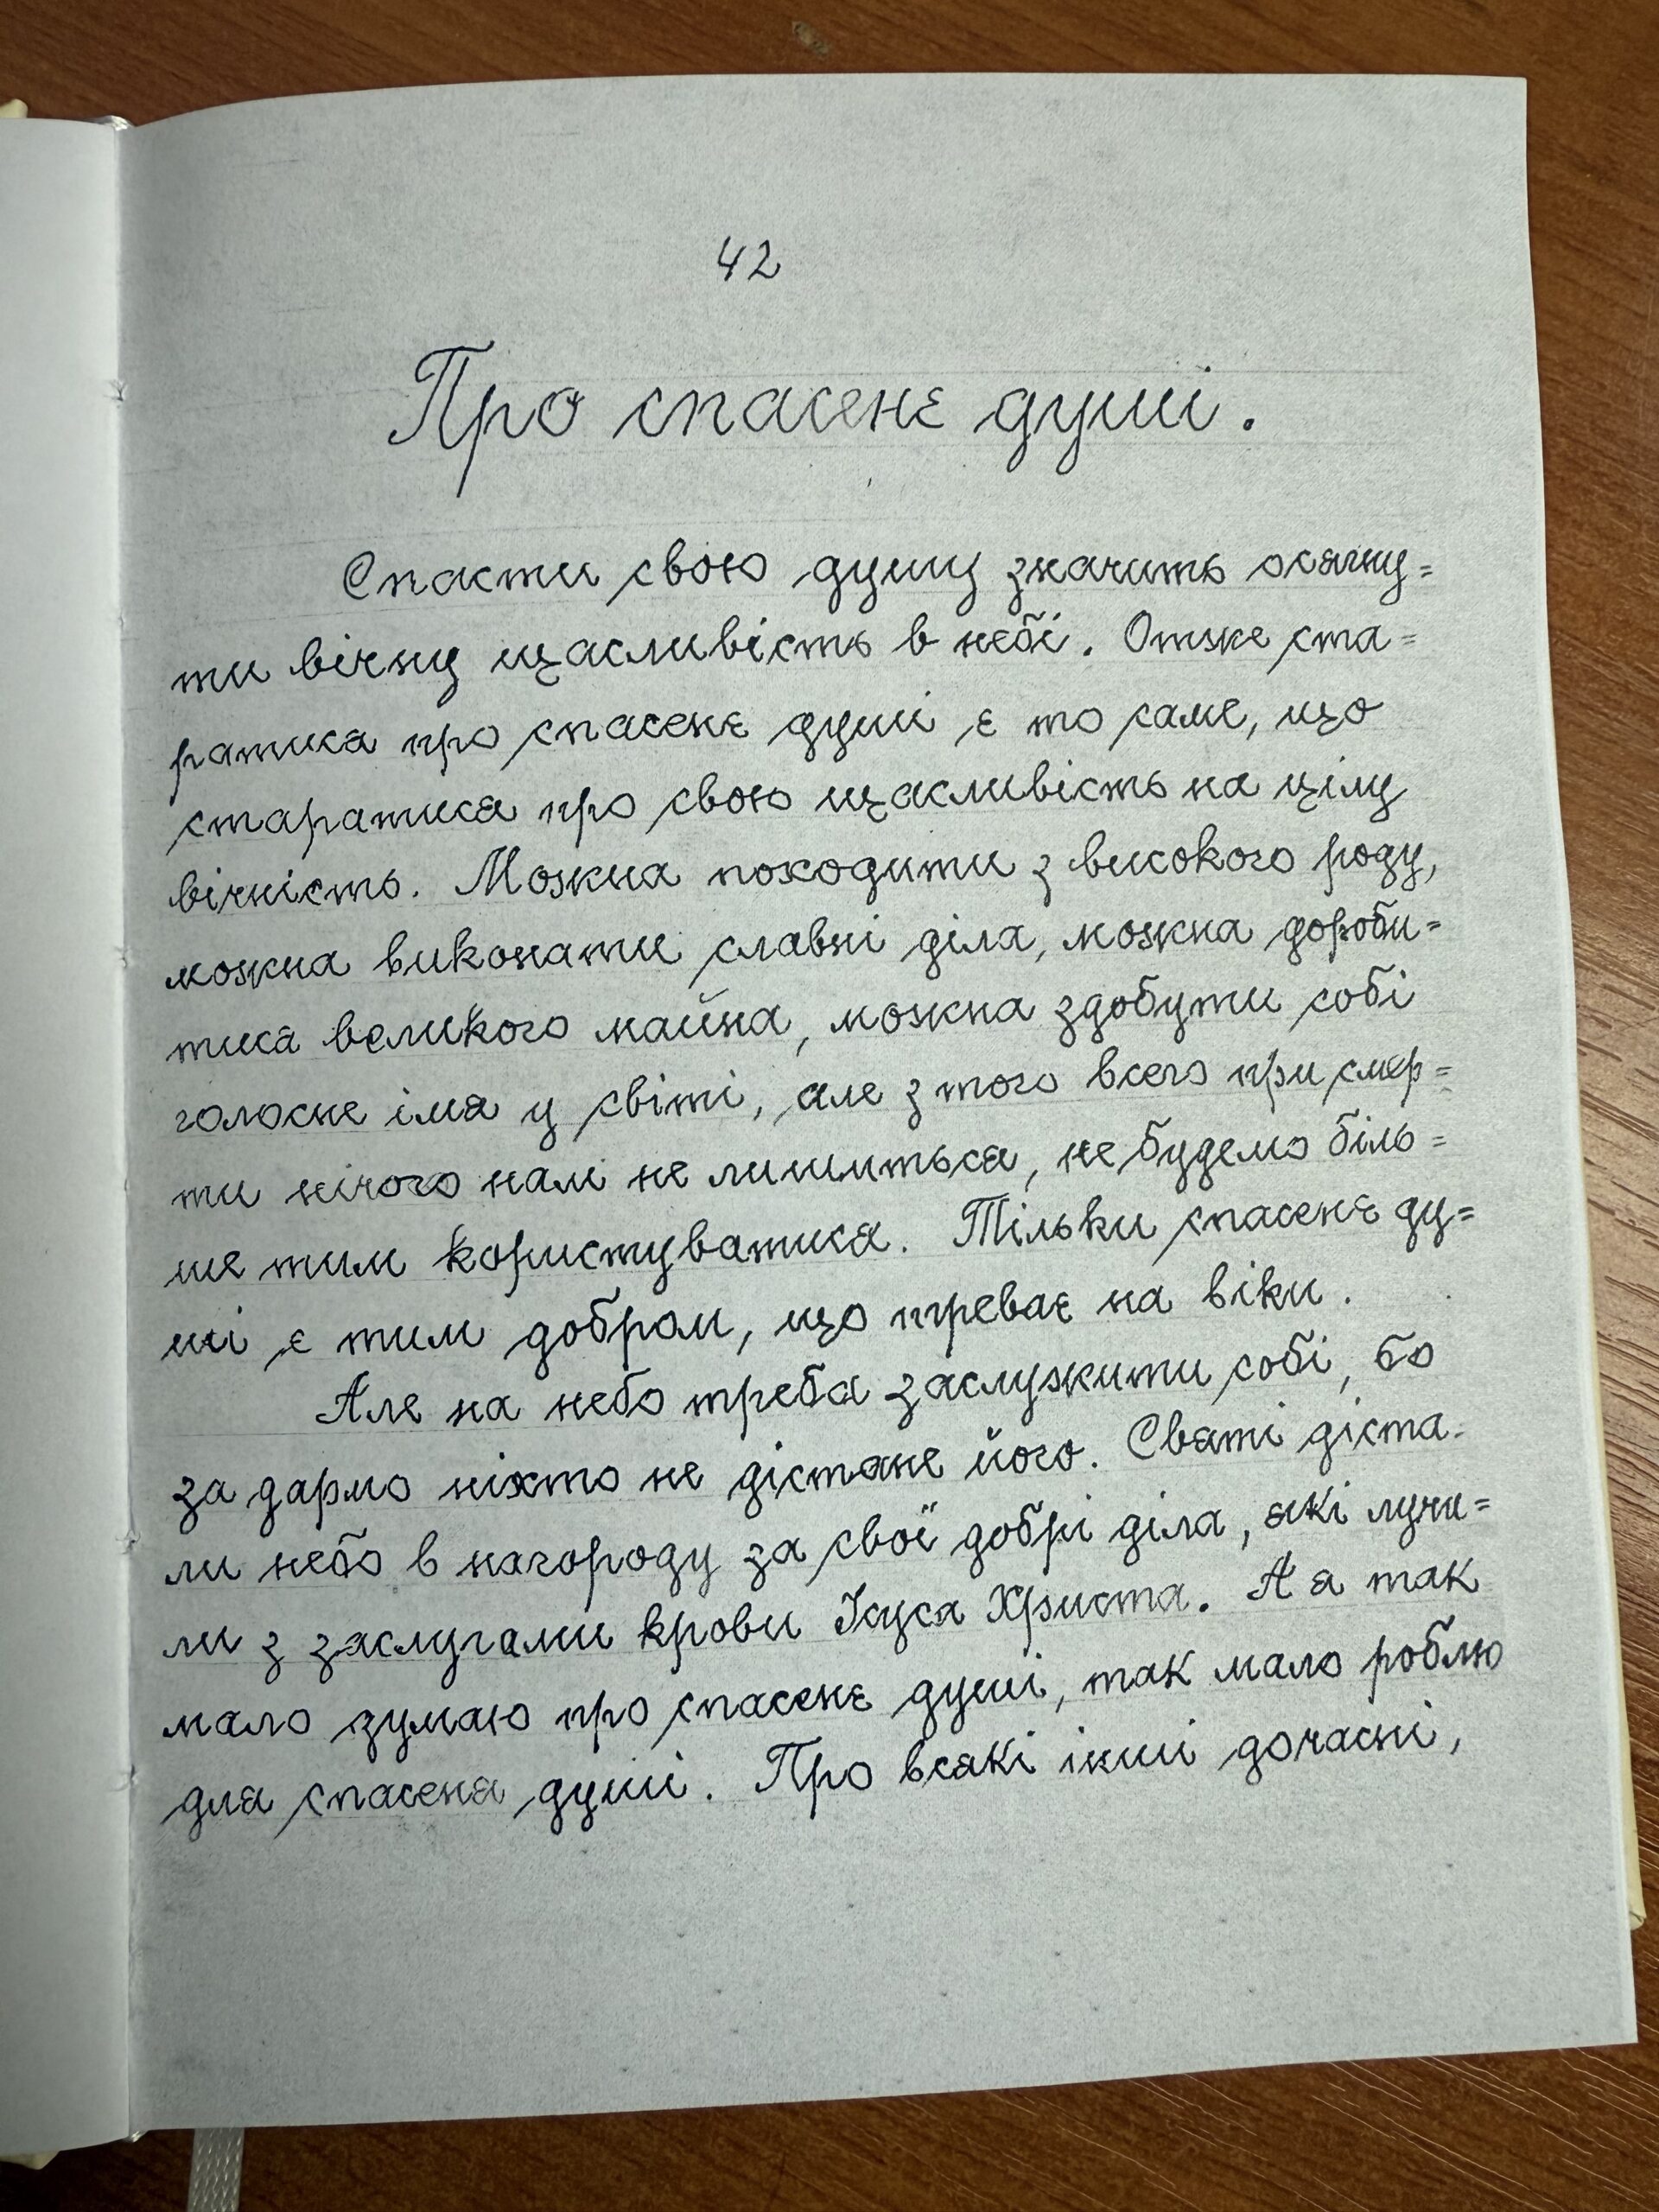 42
Про спасенє душі.
Спасти свою душу значить осягну=
ти вічну щасливість в небі. Отже ста=
ратися про спасенє душі є то саме, що
старатися про свою щасливість на цілу
вічність. Можна походити з високого роду,
можна виконати славні діла, можна дороби=
тися великого майна, можна здобути собі
голосне імя у світі, але з того всего при смер=
ти нічого нам не лишиться, не будемо біль=
ше тим користуватися. Тільки спасенє ду=
ші є тим добром, що треває на віки.
Але на небо треба заслужити собі, бо
за дармо ніхто не дістане його. Святі діста-
ли небо в нагороду за свої добрі діла, які лучи=
ли з заслугами крови Ісуса Христа. А я так
мало думаю про спасенє душі, так мало роблю
для спасеня душі. Про всякі інші дочасні,